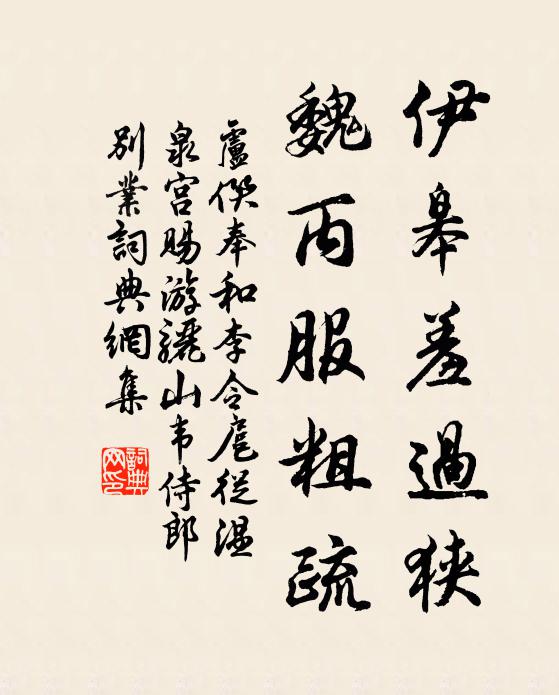 伊皋羞過狹
魏丙服粗疏
盧僎奉和李令扈從溫
泉宮賜游驪山韦侍郎
別業詞典網集
詞典
网印